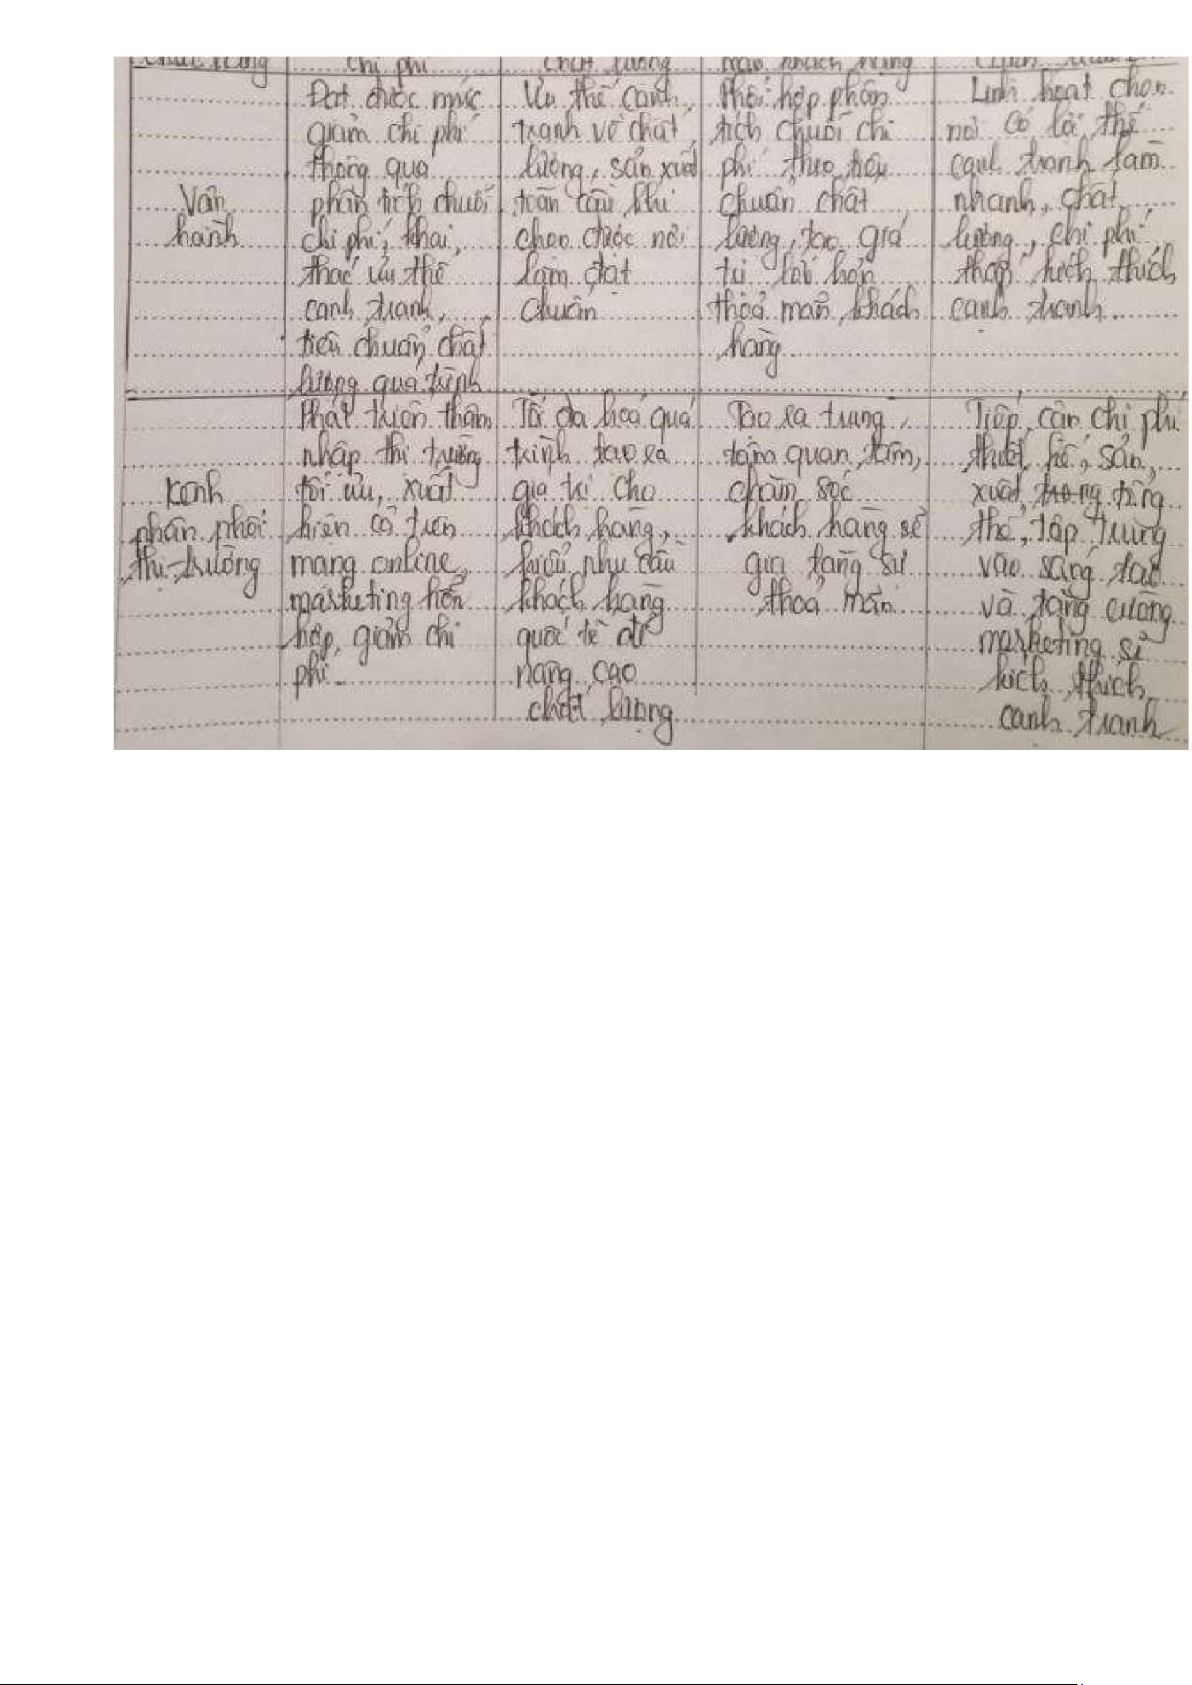 Chức năng
chi phí
chất lượng
mãn khách hàng
Vận
hành
Đạt được mức
giảm chi phí
thông qua
phân tích chuỗi
chi phí, khai
thác ưu thế
cạnh tranh,
tiêu chuẩn chất
lượng quá trình
Ưu thế cạnh
tranh về chất
lượng, sản xuất
toàn cầu khi
chọn được nơi
làm đạt
chuẩn
Phối hợp phân
tích chuỗi chi
phí theo tiêu
chuẩn chất
lượng, tạo giá
trị tốt hơn
thỏa mãn khách
hàng
Linh hoạt chọn
nơi có lợi thế
cạnh tranh làm
nhanh, chất
lượng, chi phí
thấp kích thích
cạnh tranh
Kênh
phân phối
thị trường
Phát triển thâm
nhập thị trường
tối ưu, xuất
hiện cả trên
mạng online,
marketing hỗn
hợp, giảm chi
phí
Tối đa hoá quá
trình tạo ra
giá trị cho
khách hàng,
hiểu nhu cầu
khách hàng
quốc tế để
nâng cao
chất lượng
Tạo ra trung
tâm quan tâm,
chăm sóc
khách hàng sẽ
gia tăng sự
thoả mãn
Tiếp cận chi phí
thiết kế, sản
xuất trong từng
thể, tập trung
vào sáng tạo
và tăng cường
marketing sẽ
kích thích
cạnh tranh